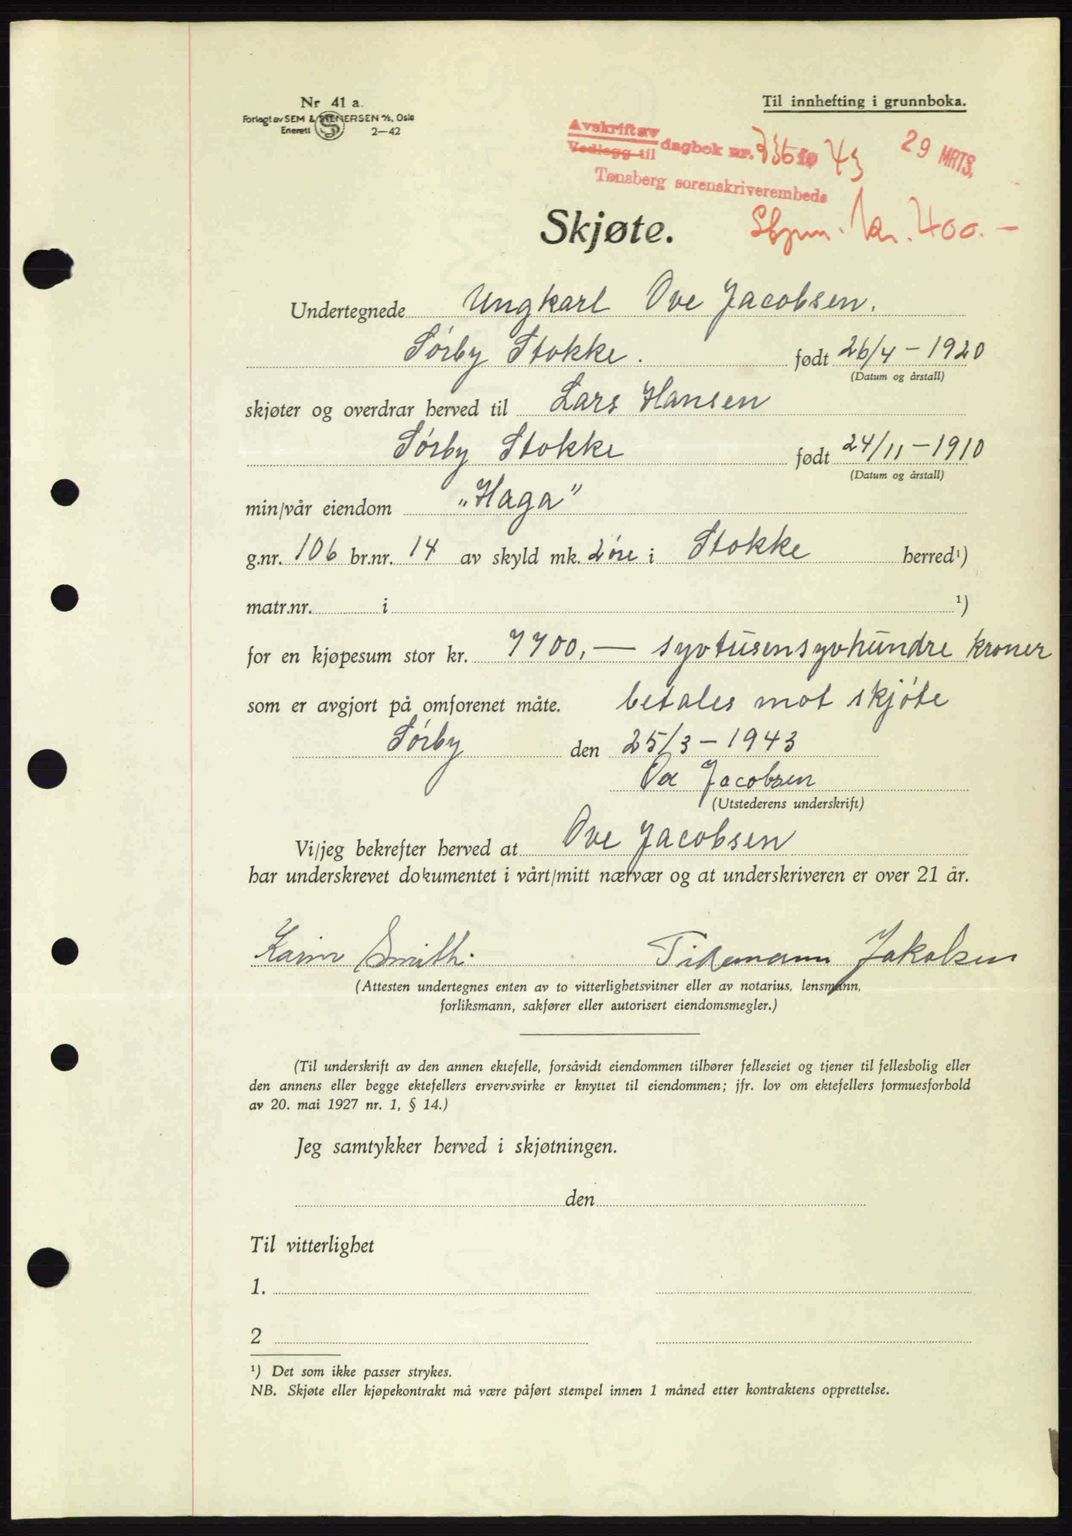 Nr 41 a.
Forlagt av SEM & STENERSEN A/S, Oslo
Enerett 2—42
Til innhefting i grunnboka.
Avskrift av
Vedlegg til dagbok nr. 736 19 43
29 MRTS.
Tønsberg sorenskriverembede
kr. 400.—
Skjøte.
Undertegnede Ungkarl Ove Jacobsen.
Sørby Stokke. født 26/4 – 1920
(Datum og årstall)
skjøter og overdrar herved til Lars Hansen
Sørby Stokke født 24/11 – 1910
(Datum og årstall)
min/vår eiendom "Haga"
g.nr. 106 br.nr. 14 av skyld mk. 2 øre i Stokke herred¹)
matr.nr. i ¹)
for en kjøpesum stor kr. 7700,— syvtusensyvhundre kroner
som er avgjort på omforenet måte. betales mot skjøte
Sørby den 25/3 – 1943
Ove Jacobsen
(Utstederens underskrift)
Vi/jeg bekrefter herved at Ove Jacobsen
har underskrevet dokumentet i vårt/mitt nærvær og at underskriveren er over 21 år.
Karin Smith. Tidemann Jakobsen
(Attesten undertegnes enten av to vitterlighetsvitner eller av notarius, lensmann,
forliksmann, sakfører eller autorisert eiendomsmegler.)
(Til underskrift av den annen ektefelle, forsåvidt eiendommen tilhører felleseiet og tjener til fellesbolig eller
den annens eller begge ektefellers ervervsvirke er knyttet til eiendommen; jfr. lov om ektefellers formuesforhold
av 20. mai 1927 nr. 1, § 14.)
Jeg samtykker herved i skjøtningen.
den
Til vitterlighet
1.
2
¹) Det som ikke passer strykes.
NB. Skjøte eller kjøpekontrakt må være påført stempel innen 1 måned etter kontraktens opprettelse.